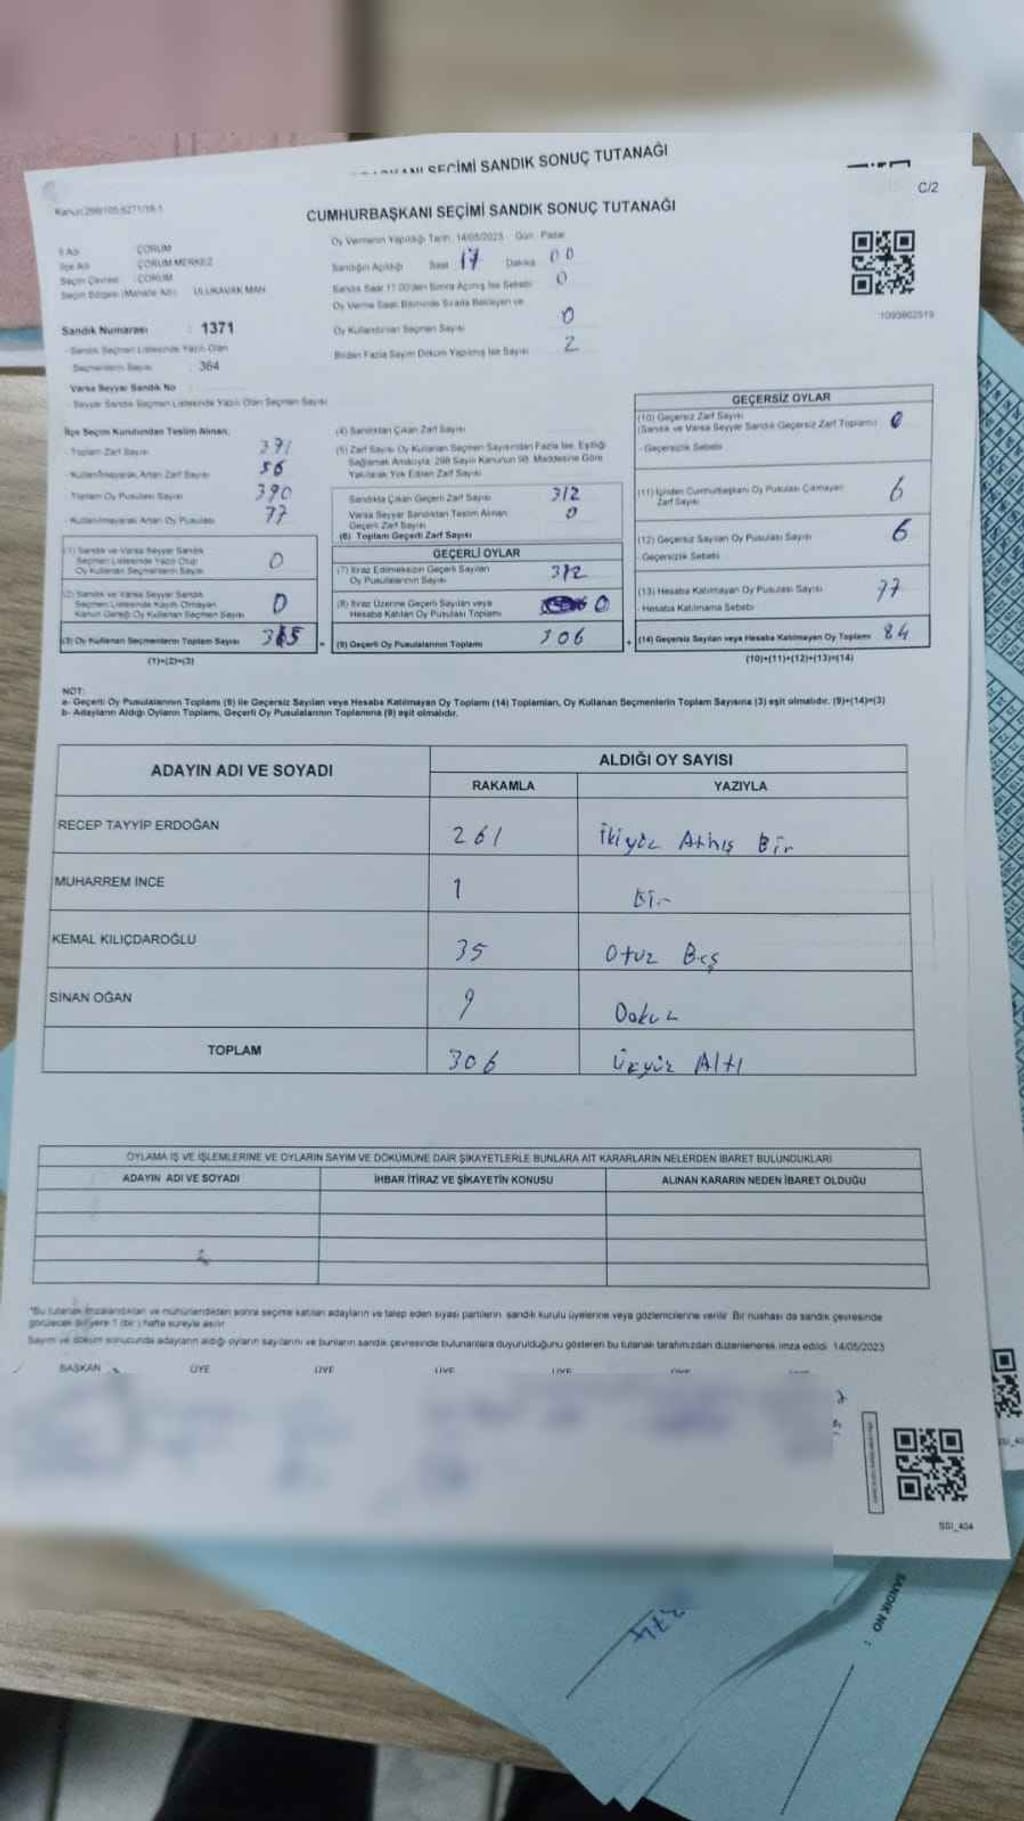 SEÇİMİ SANDIK SONUÇ TUTANAĞI
C/2
CUMHURBAŞKANI SEÇİMİ SANDIK SONUÇ TUTANAĞI
Oy Vermenin Yapıldığı Tarih 14/05/2023 Gün Pazar
İl Adı ÇORUM
İlçe Adı ÇORUM MERKEZ
Seçim Çevresi ÇORUM
Seçim Bölgesi (Mahalle Adı) ULUKAVAK MAH.
Sandığın Açıldığı Saat 17 Dakika 00
0
Oy Kullandırılan Seçmen Sayısı 0
Birden Fazla Sayım Döküm Yapılmış İse Sayısı 2
1093602519
Sandık Numarası : 1371
Sandık Seçmen Listesinde Yazılı Olan
Seçmenlerin Sayısı : 364
Varsa Seyyar Sandık No
Seyyar Sandık Seçmen Listesinde Yazılı Olan Seçmen Sayısı
İlçe Seçim Kurulundan Teslim Alınan;
- Toplam Zarf Sayısı 391
- Kullanılmayarak Artan Zarf Sayısı 56
- Toplam Oy Pusulası Sayısı 390
- Kullanılmayarak Artan Oy Pusulası 77
(1) Sandık ve Varsa Seyyar Sandık
Seçmen Listesinde Yazılı Olup
Oy Kullanan Seçmenlerin Sayısı 0
(2) Sandık ve Varsa Seyyar Sandık
Seçmen Listesinde Kayıtlı Olmayan
Kanun Gereği Oy Kullanan Seçmen Sayısı 0
(3) Oy Kullanan Seçmenlerin Toplam Sayısı
(1)+(2)=(3)
(4) Sandıktan Çıkan Zarf Sayısı
(5) Zarf Sayısı Oy Kullanan Seçmen Sayısından Fazla İse, Eşitliği
Sağlamak Amacıyla, 298 Sayılı Kanunun 98. Maddesine Göre
Yakılarak Yok Edilen Zarf Sayısı
Sandıkta Çıkan Geçerli Zarf Sayısı 312
Varsa Seyyar Sandıktan Teslim Alınan
Geçerli Zarf Sayısı 0
(6) Toplam Geçerli Zarf Sayısı
GEÇERLİ OYLAR
(7) İtiraz Edilmeksizin Geçerli Sayılan
Oy Pusulalarının Sayısı 312
(8) İtiraz Üzerine Geçerli Sayılan veya
Hesaba Katılan Oy Pusulası Toplamı 0
(9) Geçerli Oy Pusulalarının Toplamı 306
GEÇERSİZ OYLAR
(10) Geçersiz Zarf Sayısı
(Sandık ve Varsa Seyyar Sandık Geçersiz Zarf Toplamı) 0
- Geçersizlik Sebebi
(11) İçinden Cumhurbaşkanı Oy Pusulası Çıkmayan
Zarf Sayısı 6
(12) Geçersiz Sayılan Oy Pusulası Sayısı 6
- Geçersizlik Sebebi
(13) Hesaba Katılmayan Oy Pusulası Sayısı 77
- Hesaba Katılmama Sebebi
(14) Geçersiz Sayılan veya Hesaba Katılmayan Oy Toplamı 84
(10)+(11)+(12)+(13)=(14)
NOT:
a- Geçerli Oy Pusulalarının Toplamı (9) ile Geçersiz Sayılan veya Hesaba Katılmayan Oy Toplamı (14) Toplamları, Oy Kullanan Seçmenlerin Toplam Sayısına (3) eşit olmalıdır. (9)+(14)=(3)
b- Adayların Aldığı Oyların Toplamı, Geçerli Oy Pusulalarının Toplamına (9) eşit olmalıdır.
ADAYIN ADI VE SOYADI
ALDIĞI OY SAYISI
RAKAMLA YAZIYLA
RECEP TAYYİP ERDOĞAN 261 İkiyüz Atmış Bir
MUHARREM İNCE 1 Bir
KEMAL KILIÇDAROĞLU 35 Otuz Beş
SİNAN OĞAN 9 Dokuz
TOPLAM 306 Üçyüz Altı
OYLAMA İŞ VE İŞLEMLERİNE VE OYLARIN SAYIM VE DÖKÜMÜNE DAİR ŞİKAYETLERLE BUNLARA AİT KARARLARIN NELERDEN İBARET BULUNDUKLARI
ADAYIN ADI VE SOYADI İHBAR İTİRAZ VE ŞİKAYETİN KONUSU ALINAN KARARIN NEDEN İBARET OLDUĞU
"Bu tutanak imzalandıktan ve mühürlendikten sonra seçime katılan adayların ve talep eden siyasi partilerin, sandık kurulu üyelerine veya gözlemcilerine verilir. Bir nüshası da sandık çevresinde
görülecek bir yere 1 (bir) hafta süreyle asılır
Sayım ve döküm sonucunda adayların aldığı oyların sayılarını ve bunların sandık çevresinde bulunanlara duyurulduğunu gösteren bu tutanak tarafımızdan düzenlenerek imza edildi. 14/05/2023
BAŞKAN ÜYE ÜYE ÜYE ÜYE ÜYE
SSI_404
SANDIK NO :
374